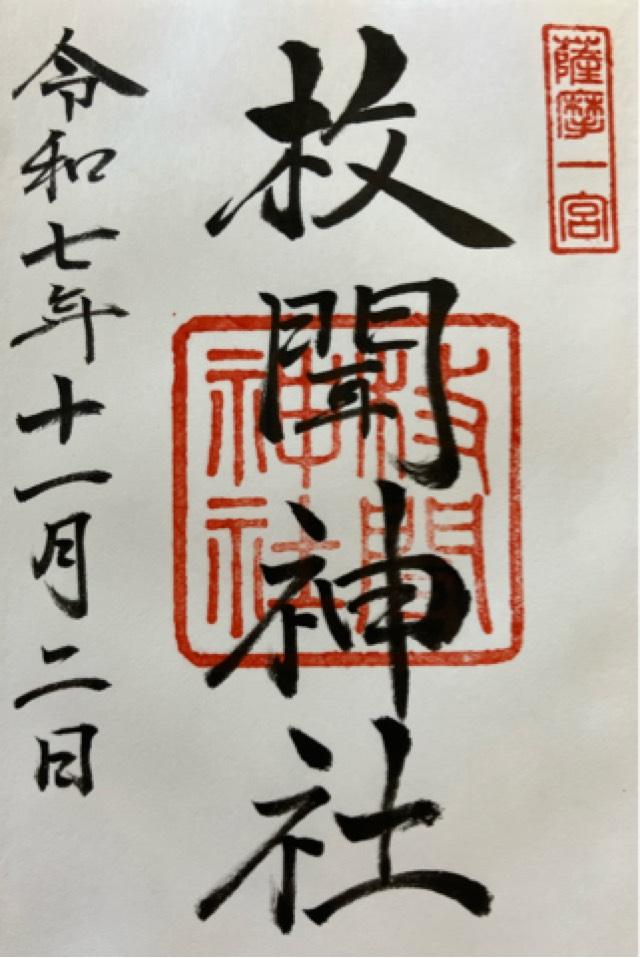 薩摩一宮
枚聞神社
枚聞
神社
令和七年十一月二日